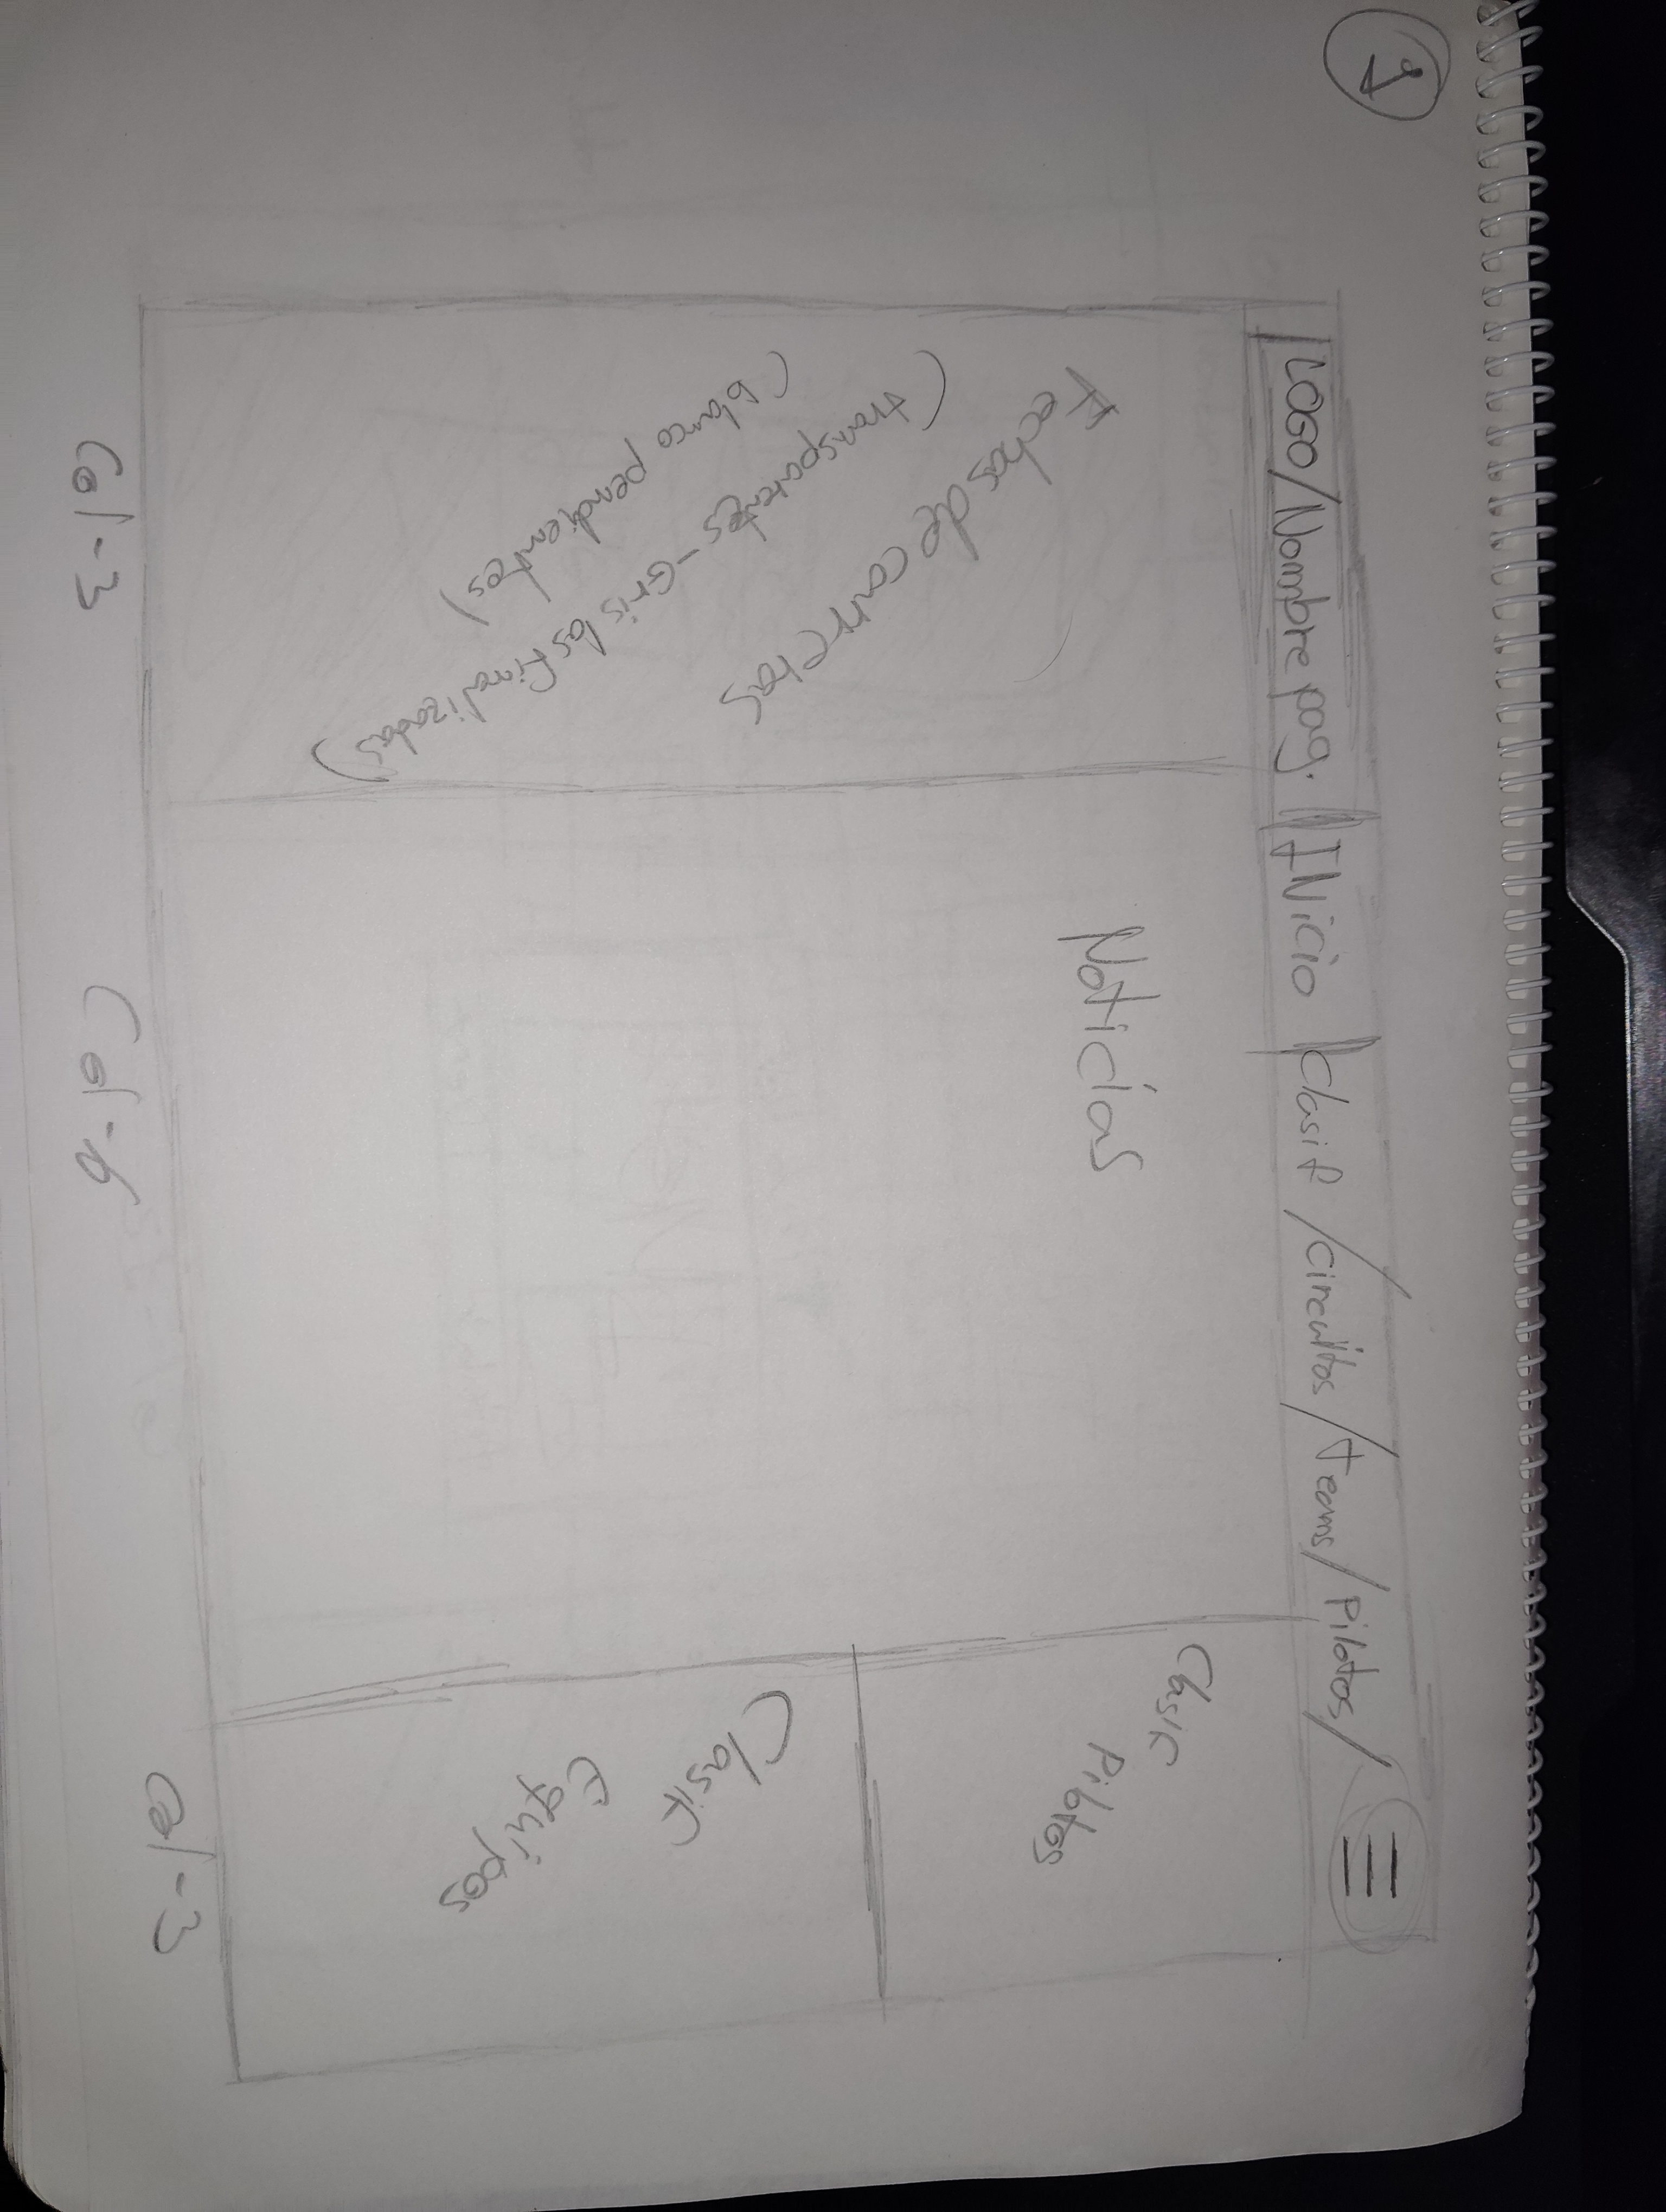 1
LOGO/Nombre pag. INicio Clasif /circuitos/teams/Pilotos/
Fechas de carreras
(transparentes-Gris las finalizadas)
(blanco pendientes)
Noticias
Clasif
Pilotos
Clasif
Equipos
Col-3
Col-6
Col-3